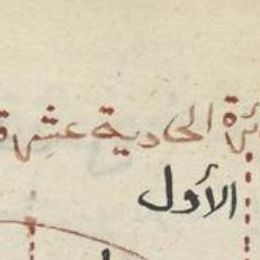 ئرة الحادية عشرة
الأول